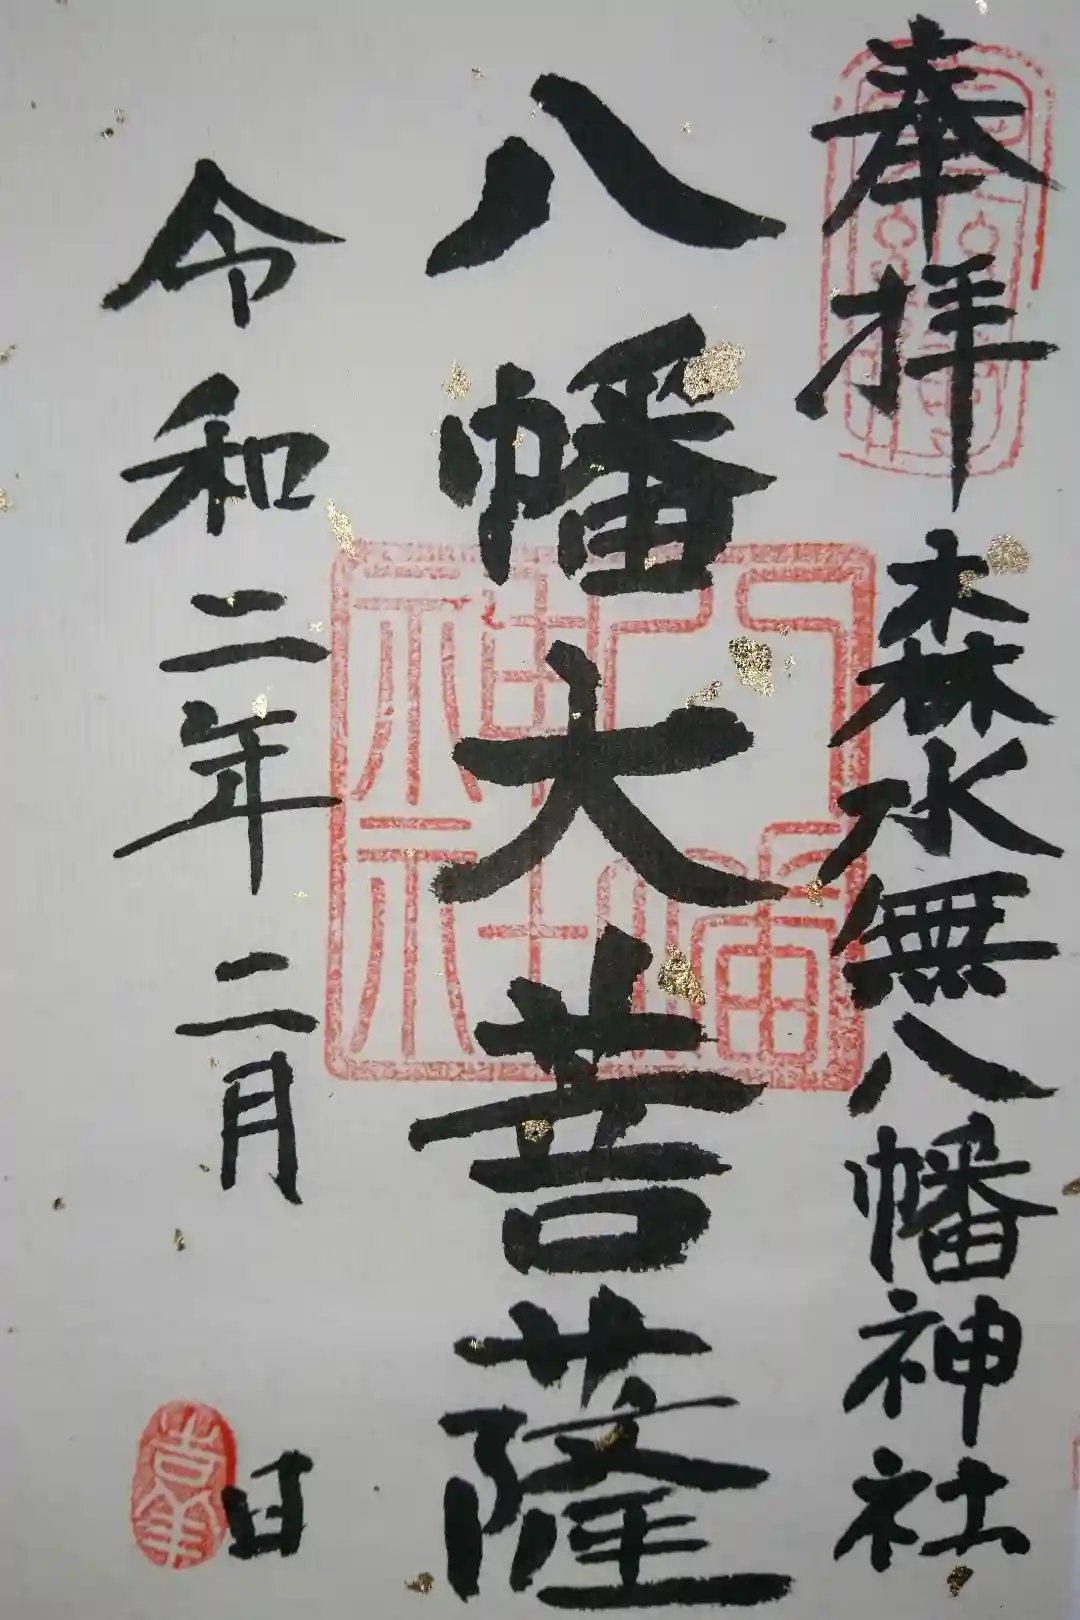 奉拝 森水無八幡神社
八幡大菩薩
令和二年二月 日
八幡
神社